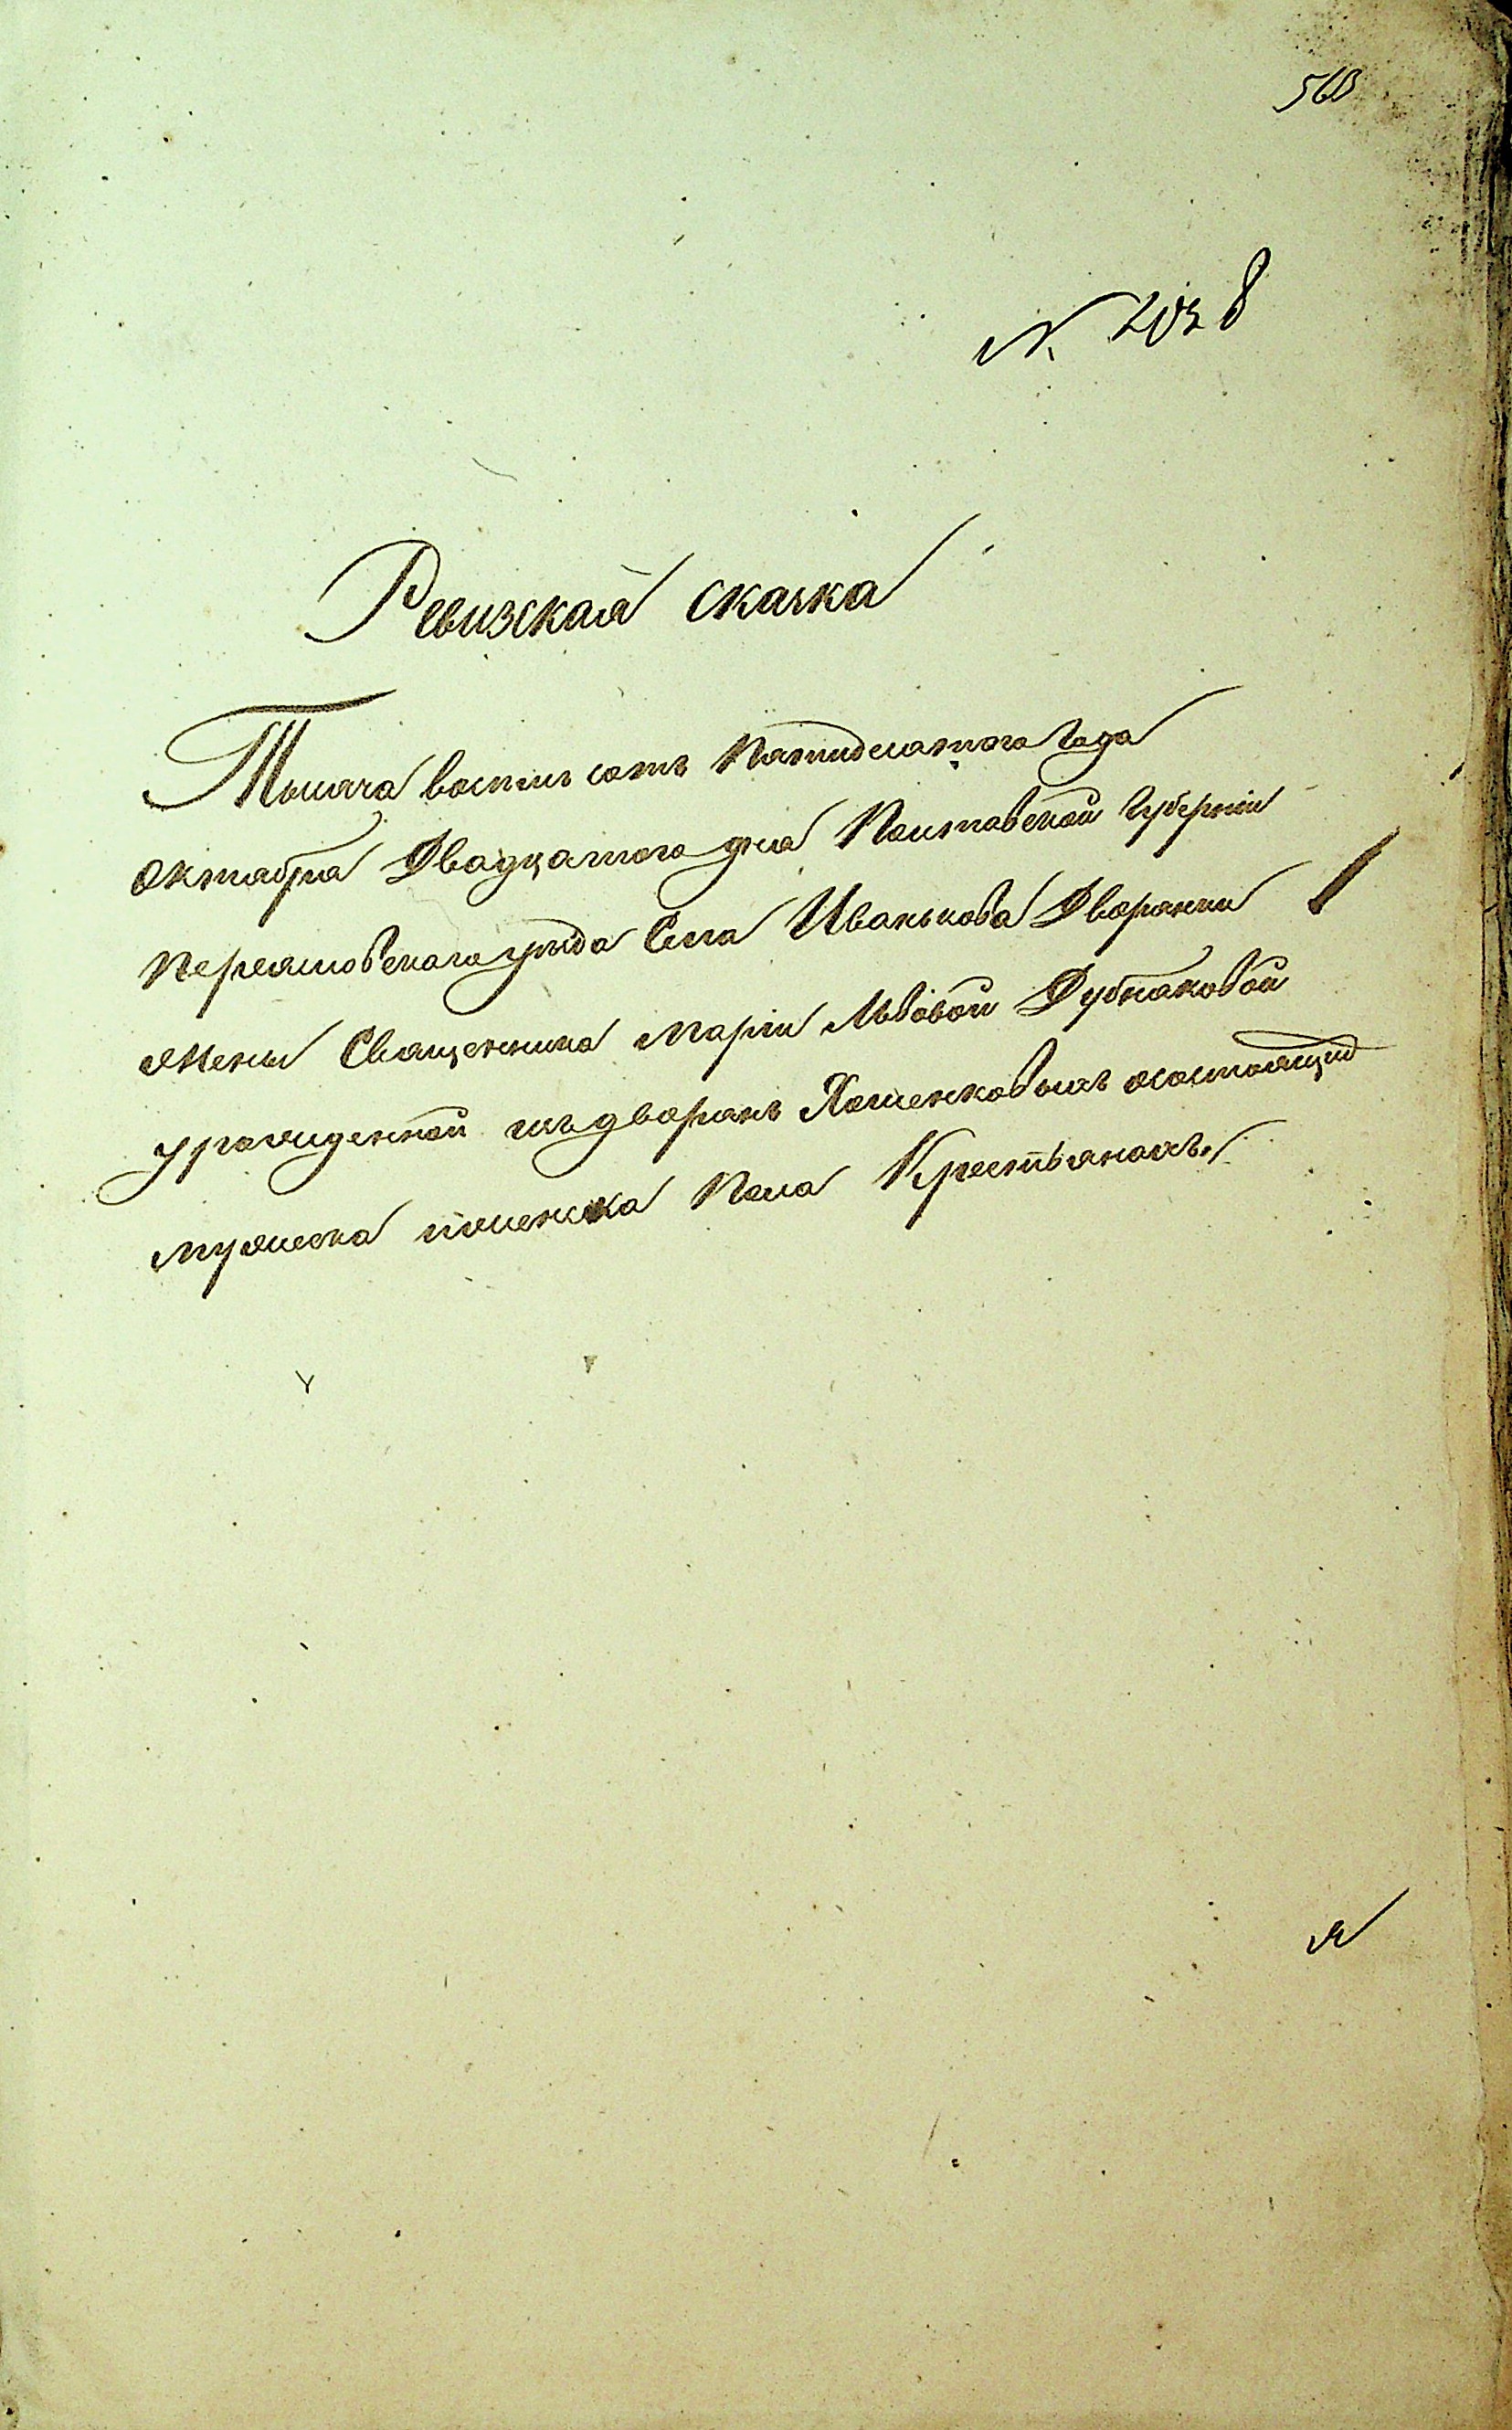 560
N. 2038
Ревизская скаска
Тысяча восемь сотъ Пятидесятого Года
Октября Двадцатого дня Полтавской Губерніи
Переяславского уезда Села Иванькова Дворянки
Жены Священника Маріи Львовой
урожденной изъ дворянъ осостоящихъ
мужеска и женска Пола Крестьянахъ.